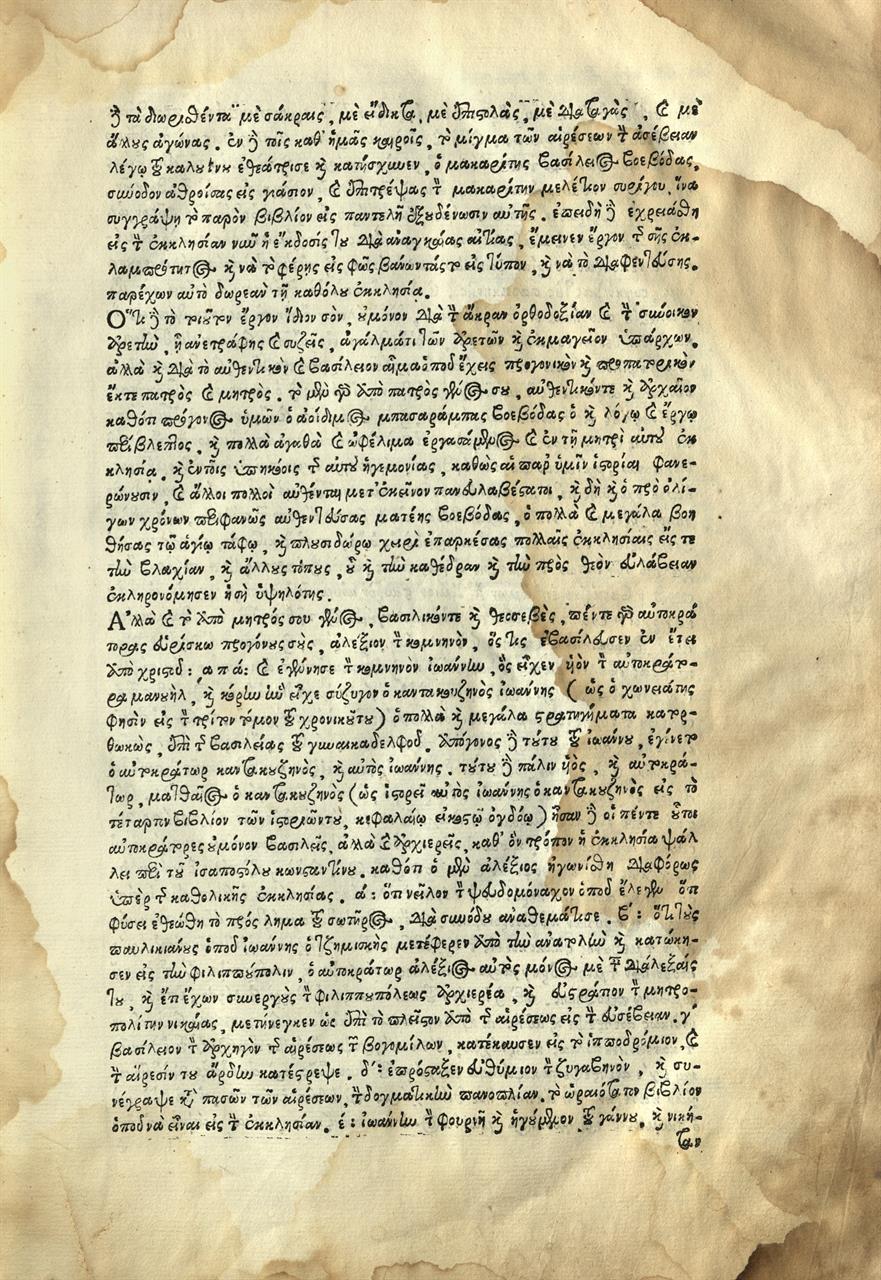 ἢ τὰ διορισθέντα μὲ σάκραις, μὲ εἴδικτα, μὲ ἐπιστολὰς, μὲ διαταγὰς, καὶ μὲ
ἄλλους ἀγώνας. ἐν δὲ τοῖς καθ' ἡμᾶς καιροῖς, τὸ μίγμα τῶν αἱρέσεων τὴν ἀσέβειαν
λέγω τοῦ καλουίνου ἐθεάτρισε καὶ κατῄσχυνεν, ὁ μακαρίτης βασίλειος βοεβόδας,
σύνοδον ἀθροίσας εἰς γιάσιον, καὶ ἐπιτρέψας τὸν μακαρίτην μελέτιον συρίγου, ἵνα
συγγράψῃ τὸ παρὸν βιβλίον εἰς παντελῆ ἐξουδένωσιν αὐτῆς. ἐπειδὴ δὲ ἐχρειάσθη
εἰς τὴν ἐκκλησίαν νῦν ἡ ἔκδοσίς του διὰ ἀναγκαίας αἰτίας, ἔμεινεν ἔργον τῆς σῆς ἐκ-
λαμπρότητος καὶ νὰ τὸ φέρῃς εἰς φῶς βάνωντάς το εἰς τύπον, καὶ νὰ τὸ διαφεντεύσῃς,
παρέχων αὐτὸ δωρεὰν τῇ καθόλου ἐκκλησίᾳ.
Ὅτι δὲ τὸ τοιοῦτον ἔργον ἴδιον σὸν, οὐ μόνον διὰ τὴν ἄκραν ὀρθοδοξίαν καὶ τὴν σύνοικον
ἀρετὴν, ᾗ ἀνετράφης καὶ συζεῖς, ἄγαλμά τι τῶν ἀρετῶν καὶ ἐκμαγεῖον ὑπάρχων,
ἀλλὰ καὶ διὰ τὸ αὐθεντικὸν καὶ βασίλειον αἷμα ὁποῦ ἔχεις προγονικὸν καὶ προπατρικὸν
ἔκτε πατρὸς καὶ μητρὸς. τὸ μὲν γὰρ ἀπὸ πατρὸς γένος σου, αὐθεντικόντε καὶ ἀρχαῖον
καθότι πρόγονος ὑμῶν ὁ ἀοίδιμος μπασαράμπας βοεβόδας ὁ καὶ λόγῳ καὶ ἔργῳ
περίβλεπτος, καὶ πολλὰ ἀγαθὰ καὶ ὠφέλιμα ἐργασάμενος καὶ ἐν τῇ μητρὶ αὐτοῦ ἐκ
κλησίᾳ, καὶ ἐν τοῖς ὑπηκόοις τῆς αὐτοῦ ἡγεμονίας, καθὼς αἱ παρ' ὑμῖν ἱστορίαι φανε-
ρώνουσιν, καὶ ἄλλοι πολλοὶ αὐθένται μετ' ἐκεῖνον πανευλαβέστατοι, καὶ δὴ καὶ ὁ πρὸ ὀλί-
γων χρόνων περιφανῶς αὐθεντεύσας ματέης βοεβόδας, ὁ πολλὰ καὶ μεγάλα βοη
θήσας τῷ ἁγίῳ τάφῳ, καὶ πλουσιοδώρῳ χειρὶ ἐπαρκέσας πολλαῖς ἐκκλησίαις εἴς τε
τὴν βλαχίαν, καὶ ἄλλους τόπους, οὗ καὶ τὴν καθέδραν καὶ τὴν πρὸς θεὸν εὐλάβειαν
ἐκληρονόμησεν ἡ σὴ ὑψηλότης.
Ἀλλὰ καὶ τὸ ἀπὸ μητρός σου γένος, βασιλικόντε καὶ θεοσεβὲς, πέντε γὰρ αὐτοκρά
τορας εὑρίσκω προγόνους σου, ἀλέξιον τὸν κομνηνὸν, ὅς τις ἐβασίλευσεν ἐν ἔτει
ἀπὸ χριστοῦ: απά: καὶ ἐγέννησε τὸν κομνηνὸν ἰωάννην, ὃς εἶχεν υἱὸν τὸν αὐτοκράτο-
ρα μανουὴλ, καὶ κόρην ἣν εἶχε σύζυγον ὁ καντακουζηνὸς ἰωάννης (ὡς ὁ χωνειάτης
φησὶν εἰς τὸν τρίτον τόμον τοῦ χρονικοῦ του) ὁ πολλὰ καὶ μεγάλα στρατηγήματα κατορ-
θωκὼς, ἐπὶ τῆς βασιλείας τοῦ γυναικαδελφοῦ. ἀπόγονος δὲ τούτου τοῦ ἰωάννου, ἐγίνετο
ὁ αὐτοκράτωρ καντακουζηνὸς, καὶ αὐτὸς ἰωάννης. τούτου δὲ πάλιν υἱὸς, καὶ αὐτοκρά-
τωρ, ματθαῖος ὁ καντακουζηνὸς (ὡς ἱστορεῖ αὐτὸς ἰωάννης ὁ καντακουζηνὸς εἰς τὸ
τέταρτον βιβλίον τῶν ἱστοριῶν του, κεφαλαίῳ εἰκοστῷ ὀγδόῳ) ἦσαν δὲ οἱ πέντε οὗτοι
αὐτοκράτορες οὐ μόνον βασιλεῖς, ἀλλὰ καὶ ἀρχιερεῖς, καθ' ὃν τρόπον ἡ ἐκκλησία ψάλ
λει περὶ τοῦ ἰσαποστόλου κωνσταντίνου. καθότι ὁ μὲν ἀλέξιος ἠγωνίσθη διαφόρως
ὑπὲρ τῆς καθολικῆς ἐκκλησίας. ά: ὅτι νεῖλον τὸν ψευδομόναχον ὁποῦ ἔλεγεν ὅτι
φύσει ἐθεώθη τὸ πρόσλημα τοῦ σωτῆρος, διὰ συνόδου ἀναθεμάτισε. β΄: ὅτι τοὺς
παυλικιάνους ὁποῦ ἰωάννης ὁ τζημισκὴς μετέφερεν ἀπὸ τὴν ἀνατολὴν καὶ κατῴκη-
σεν εἰς τὴν φιλιππούπολιν, ὁ αὐτοκράτωρ ἀλέξιος αὐτὸς μόνος μὲ τὰς διαλέξαίς
του, καὶ ἔπειτ' ἔχων συνεργοὺς τὸν φιλιππουπόλεως ἀρχιερέα, καὶ εὐστράτιον τὸν μητρο-
πολίτην νικαίας, μετήνεγκεν ὡς ἐπὶ τὸ πλεῖστον ἀπὸ τῆς αἱρέσεως εἰς τὴν εὐσέβειαν. γ΄
βασίλειον τὸν ἀρχηγὸν τῆς αἱρέσεως τῶν βογομίλων, κατέκαυσεν εἰς τὸ ἱπποδρόμιον, καὶ
τὴν αἵρεσίν του ἄρδην κατέστρεψε. δ΄: ἐπρόσταξεν εὐθύμιον τὸν ζυγαβηνὸν, καὶ συ-
νέγραψε κατὰ πασῶν τῶν αἱρέσεων, τὴν δογματικὴν πανοπλίαν, τὸ ὡραιότατον βιβλίον
ὁποῦ νὰ εἶναι εἰς τὴν ἐκκλησίαν. έ: ἰωάννην τὸν φουρνῆ καὶ ἡγούμενον τοῦ γάνου, καὶ νική-
ταν